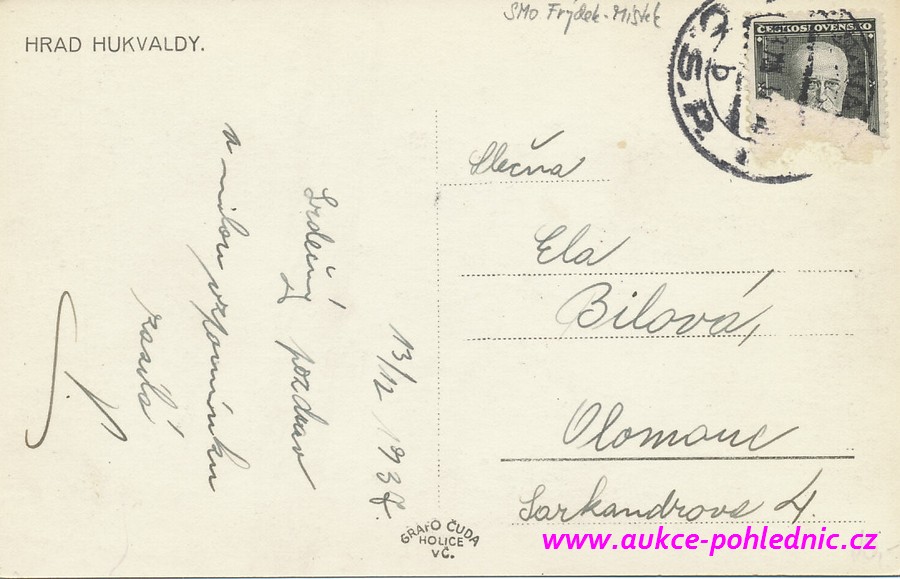 SMO Frýdek-Místek
HRAD HUKVALDY.
ČESKOSLOVENSKO
Č.S.P.
13/12 1937.
Srdečný pozdrav
a milou vzpomínku
zasílá
Slečna
Ela
Bilová,
Olomouc
Sarkandrova 4.
GRAFO ČUDA
HOLICE
VČ.
www.aukce-pohlednic.cz